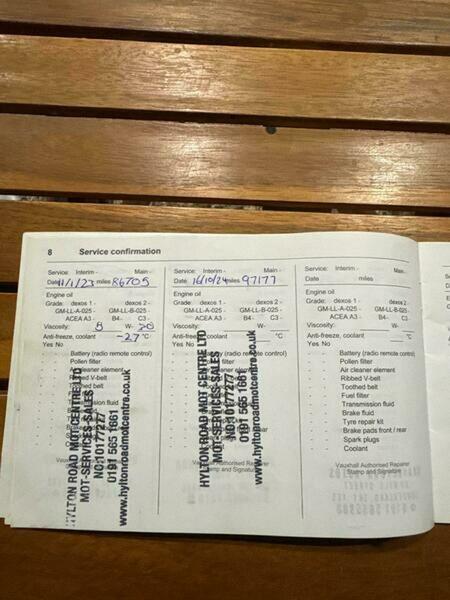 8 Service confirmation
Service: Interim - Main -
Date 11/1/23 miles 86705
Engine oil
Grade: dexos 1 - dexos 2 -
GM-LL-A-025 - GM-LL-B-025 -
ACEA A3 - B4- C3 -
Viscosity: W-
Anti-freeze, coolant -27 °C
Yes No
Battery (radio remote control)
Pollen filter
HYLTON ROAD MOT CENTRE LTD
MOT-SERVICES-SALES
0191 565 1661
www.hyltonroadmotcentre.co.uk
Service: Interim - Main -
Date 16/10/24 miles 97177
Engine oil
Grade: dexos 1 - dexos 2 -
GM-LL-A-025 - GM-LL-B-025 -
ACEA A3 - B4- C3 -
Viscosity: W-
Anti-freeze, coolant °C
Yes No
HYLTON ROAD MOT CENTRE LTD
MOT-SERVICES-SALES
NO:10177277
0191 565 1661
www.hyltonroadmotcentre.co.uk
Vauxhall Authorised Repairer
Stamp and Signature
Service: Interim - Main -
Date miles
Engine oil
Grade: dexos 1 - dexos 2 -
GM-LL-A-025 - GM-LL-B-025 -
ACEA A3 - B4- C3 -
Viscosity: W-
Anti-freeze, coolant °C
Yes No
Battery (radio remote control)
Pollen filter
Air cleaner element
Ribbed V-belt
Toothed belt
Fuel filter
Transmission fluid
Brake fluid
Tyre repair kit
Brake pads front / rear
Spark plugs
Coolant
Vauxhall Authorised Repairer
Stamp and Signature